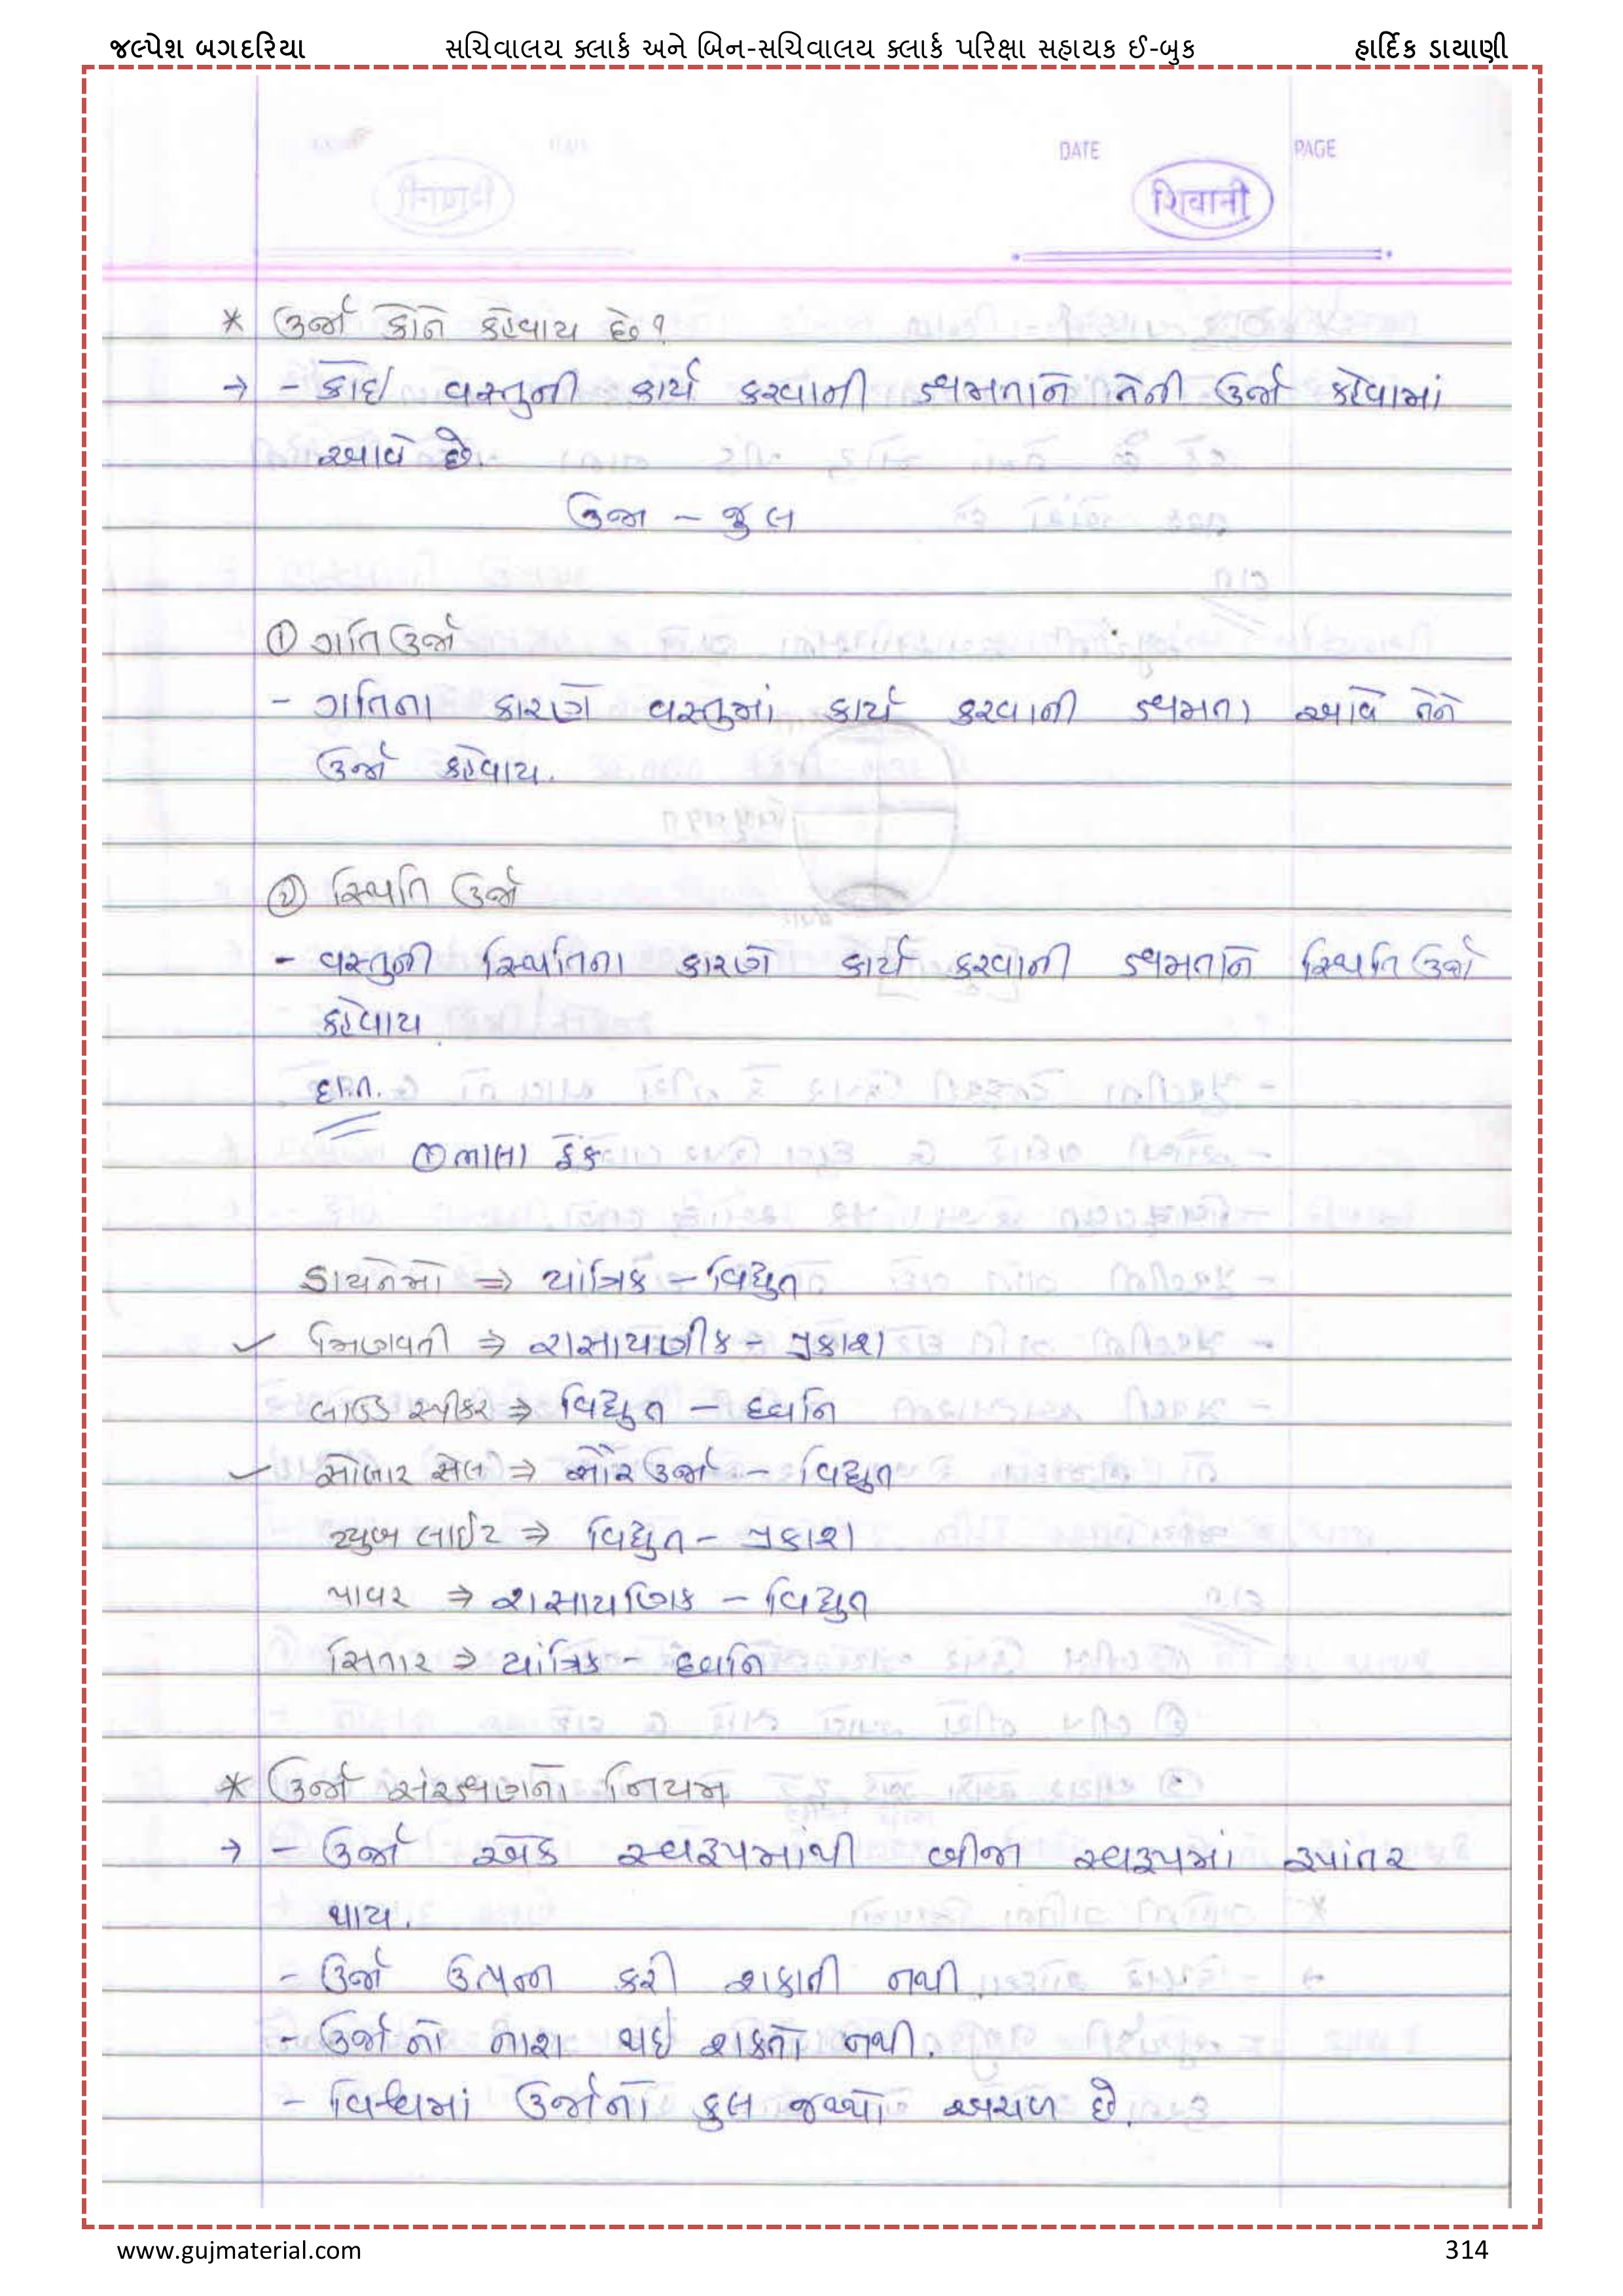 જલ્પેશ બગદરિયા સચિવાલય ક્લાર્ક અને બિન-સચિવાલય ક્લાર્ક પરિક્ષા સહાયક ઈ-બુક હાર્દિક ડાયાણી
DATE PAGE
शिवानी
* ઉર્જા કોને કહેવાય છે?
→ - કોઇ વસ્તુની કાર્ય કરવાની ક્ષમતાને તેની ઉર્જા કહેવામાં
આવે છે.
ઉર્જા - જુલ
① ગતિ ઉર્જા
- ગતિના કારણે વસ્તુમાં કાર્ય કરવાની ક્ષમતા આવે તેને
ઉર્જા કહેવાય.
② સ્થિતિ ઉર્જા
- વસ્તુની સ્થિતિના કારણે કાર્ય કરવાની ક્ષમતાને સ્થિતિ ઉર્જા
કહેવાય
દા.ત.
① ભાલા ફેંક
ડાયનેમો ⇒ યાંત્રિક - વિદ્યુત
✓ મિણબતી ⇒ રાસાયણીક - પ્રકાશ
લાઉડ સ્પીકર ⇒ વિદ્યુત - ધ્વનિ
✓ સોલાર સેલ ⇒ સૌર ઉર્જા - વિદ્યુત
ટ્યુબ લાઈટ ⇒ વિદ્યુત - પ્રકાશ
પાવર ⇒ રાસાયણિક - વિદ્યુત
સિતાર ⇒ યાંત્રિક - ધ્વનિ
* ઉર્જા સંરક્ષણનો નિયમ
→ - ઉર્જા એક સ્વરૂપમાંથી બીજા સ્વરૂપમાં રૂપાંતર
થાય.
- ઉર્જા ઉત્પન્ન કરી શકાતી નથી
- ઉર્જાનો નાશ થઇ શકતો નથી.
- વિશ્વમાં ઉર્જાનો કુલ જથ્થો અચળ છે.
www.gujmaterial.com 314